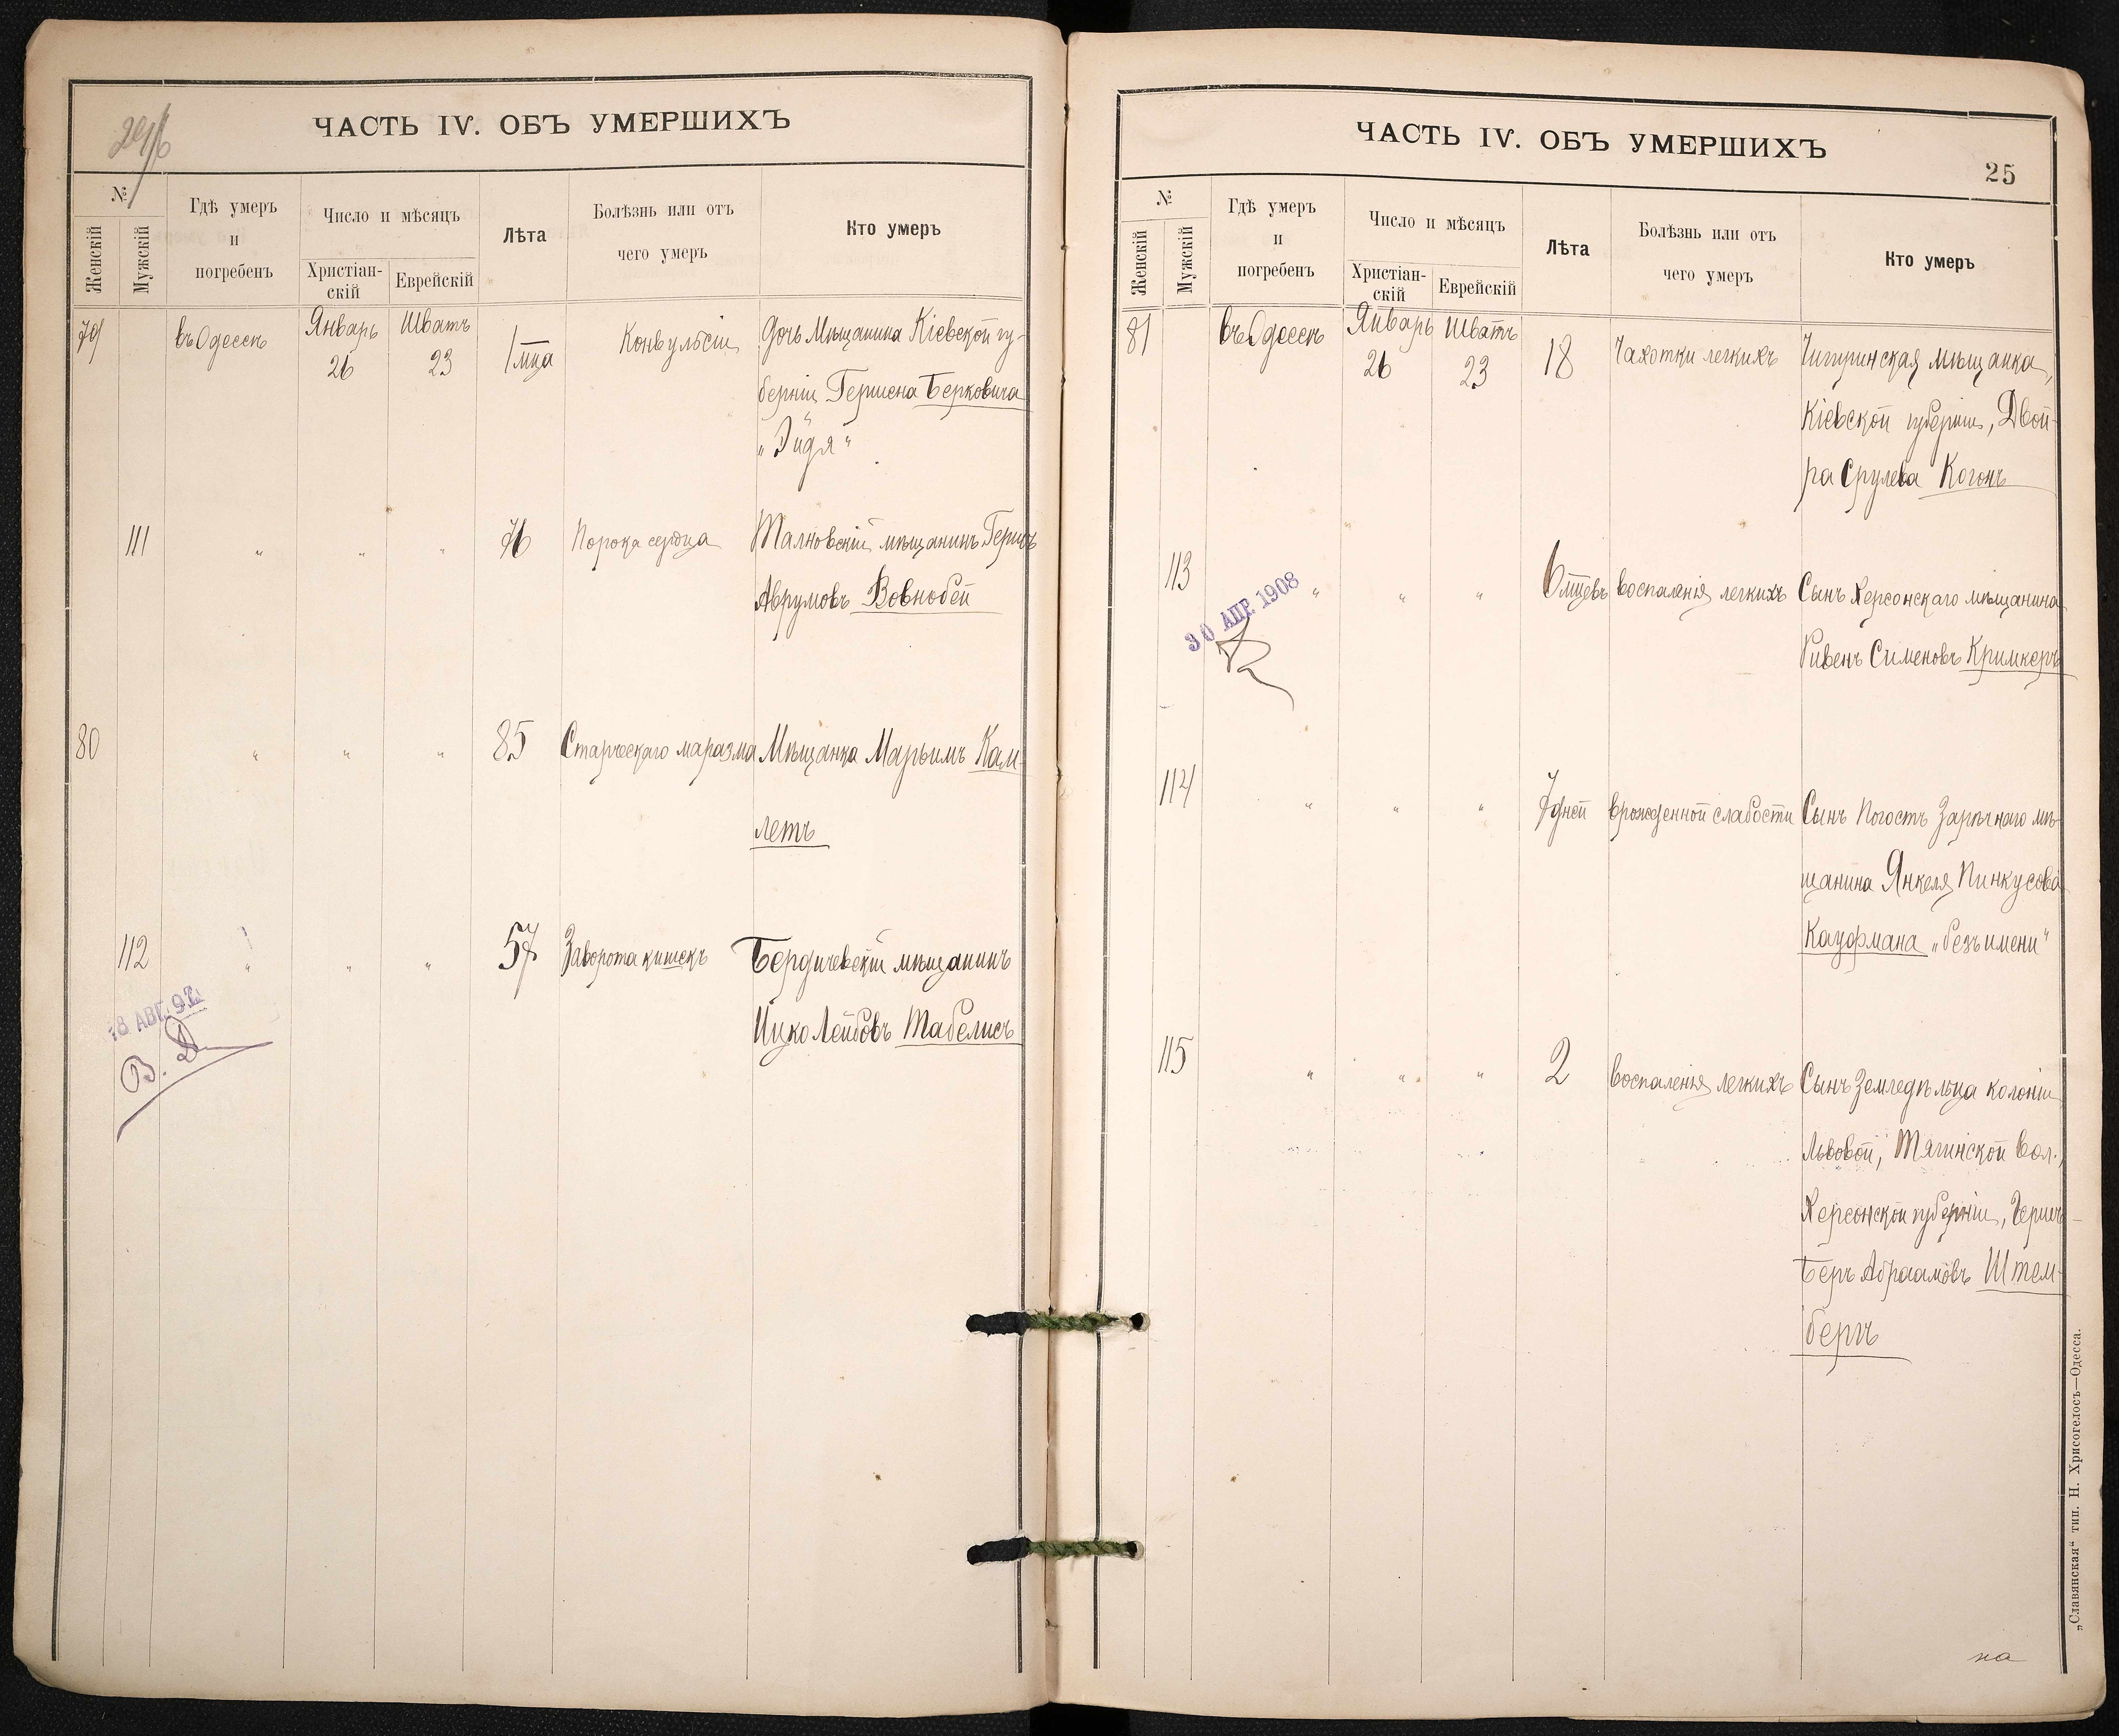 ЧАСТЬ IV. ОБЪ УМЕРШИХЪ
№
Женскій
Мужскій
Гдѣ умеръ
и
погребенъ
Число и мѣсяцъ
Христіан-
скій
Еврейскій
Лѣта
Болѣзнь или отъ
чего умеръ
Кто умеръ
79 въ Одессѣ Январь 26 Шватъ 23 1 мца Конвульсіи Дочь Мѣщанина Кіевской гу-
берніи Гершена Берковича
„Эйдя“
111 " " " 76 Порока сердца Тальновскій мѣщанинъ Гершъ
Аврумовъ Вовнобой
80 " " " 85 Старческаго маразма Мѣщанка Марьимъ Кам-
летъ
112 " " " 57 Заворота кишекъ Бердичевскій мѣщанинъ
Ицко Лейбовъ Табелисъ
18 АВГ. 97
В. Д
ЧАСТЬ IV. ОБЪ УМЕРШИХЪ
25
№
Женскій
Мужскій
Гдѣ умеръ
и
погребенъ
Число и мѣсяцъ
Христіан-
скій
Еврейскій
Лѣта
Болѣзнь или отъ
чего умеръ
Кто умеръ
81 въ Одессѣ Январь 26 Шватъ 23 18 Чахотки легкихъ Чигиринская мѣщанка,
Кіевской губерніи, Двой-
ра Срулева Когонъ
113 " " " 6 мцевъ воспаленія легкихъ Сынъ Херсонскаго мѣщанина
Рувенъ Сименовъ Кримкеръ
30 АПР. 1908
114 " " " 7 дней врожденной слабости Сынъ Погостъ Зарѣчнаго мѣ-
щанина Янкеля Пинкусова
Кауфмана „безъ имени“
115 " " " 2 воспаленія легкихъ Сынъ Земледѣльца колоніи
Львовой, Тягинской вол.,
Херсонской губерніи, Гершъ-
Беръ Абраамовъ Штем-
бергъ
на
„Славянская“ тип. Н. Хрисогелосъ—Одесса.